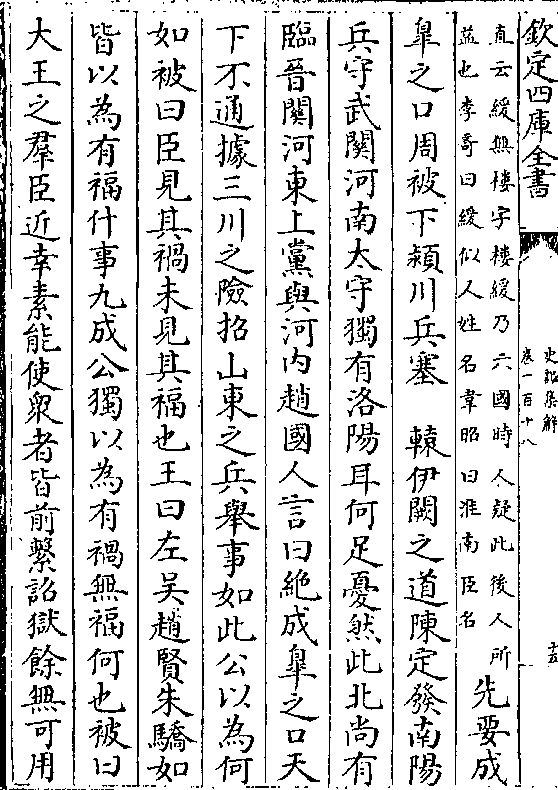 欽定四庫全書
史記集解
卷一百十八
十五
直云緩無樓字樓緩乃六國時人疑此後人所
益也李奇曰緩似人姓名韋昭曰淮南臣名
先要成
臯之口周被下潁川兵塞轅伊闕之道陳定發南陽
兵守武關河南太守獨有洛陽耳何足憂然此北尚有
臨晉關河東上黨與河內趙國人言曰絕成臯之口天
下不通據三川之險招山東之兵舉事如此公以為何
如被曰臣見其禍未見其福也王曰左吳趙賢朱驕如
皆以為有福什事九成公獨以為有禍無福何也被曰
大王之羣臣近幸素能使衆者皆前繫詔獄餘無可用